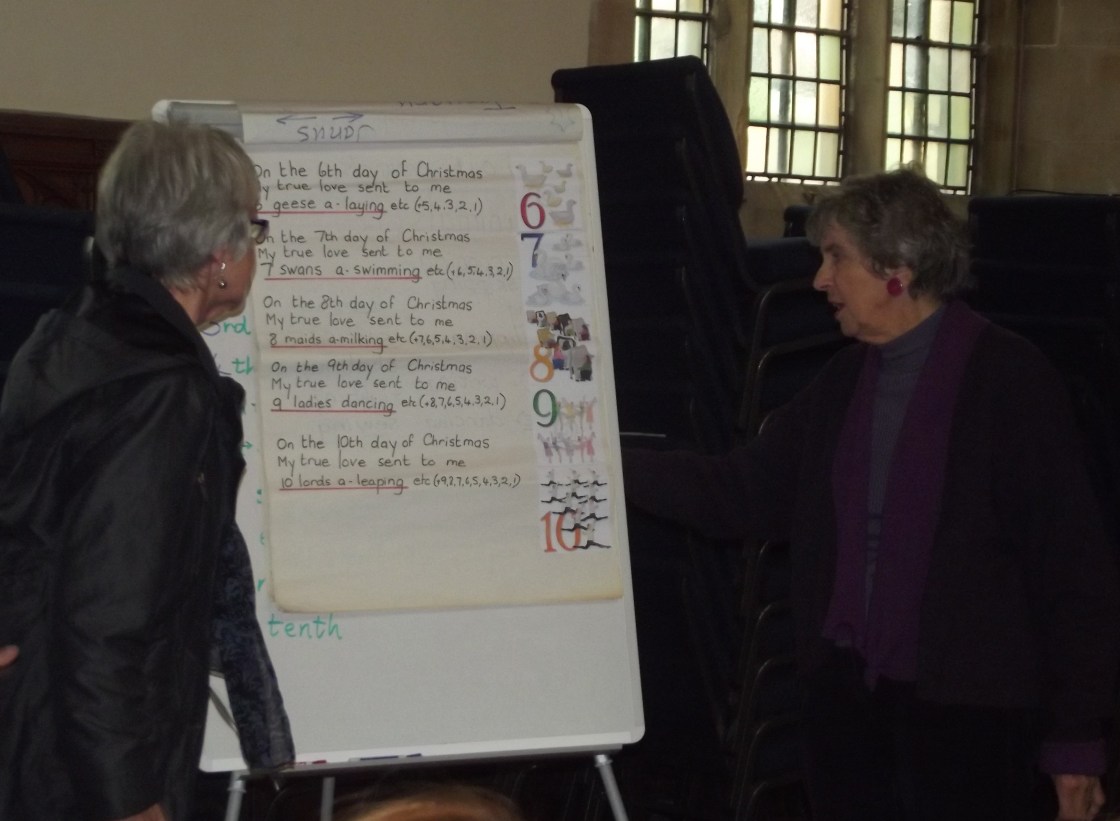 On the 6th day of Christmas
My true love sent to me
6 geese a-laying etc (+5,4,3,2,1)
6
On the 7th day of Christmas
My true love sent to me
7 swans a-swimming etc (+6,5,4,3,2,1)
7
On the 8th day of Christmas
My true love sent to me
8 maids a-milking etc (+7,6,5,4,3,2,1)
8
On the 9th day of Christmas
My true love sent to me
9 ladies dancing etc (+8,7,6,5,4,3,2,1)
9
On the 10th day of Christmas
My true love sent to me
10 lords a-leaping etc (+9,8,7,6,5,4,3,2,1)
10
3rd
th
tenth